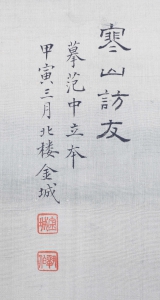 寒山訪友
摹范中立本
甲寅三月北楼金城